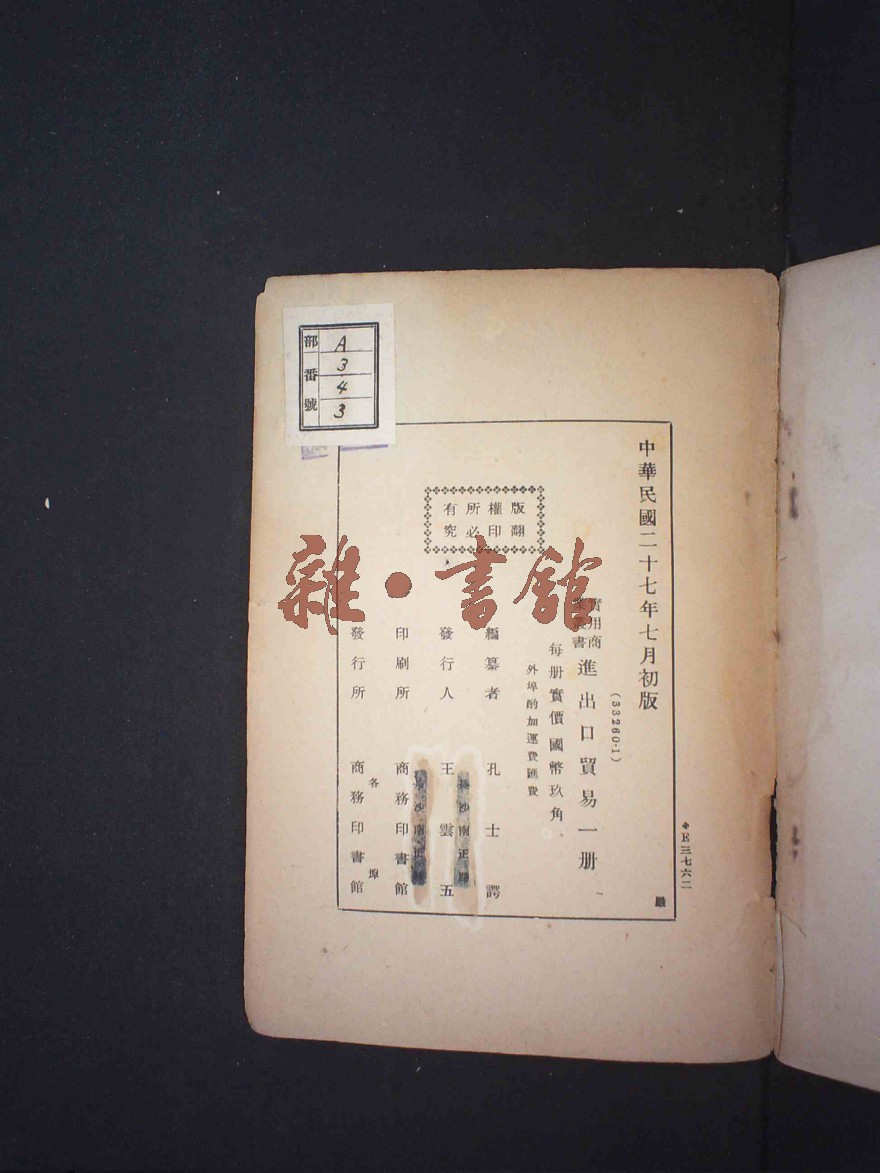 部番號
A
3
4
3
中華民國二十七年七月初版
(33260·1)
實用商
業叢書
進出口貿易一册
每册實價國幣玖角
外埠酌加運費匯費
版權所有
翻印必究
編纂者 孔士諤
長沙南正路
發行人 王雲五
長沙南正路
印刷所 商務印書館
各埠
發行所 商務印書館
＊E三七六二
嚴
雜·書館